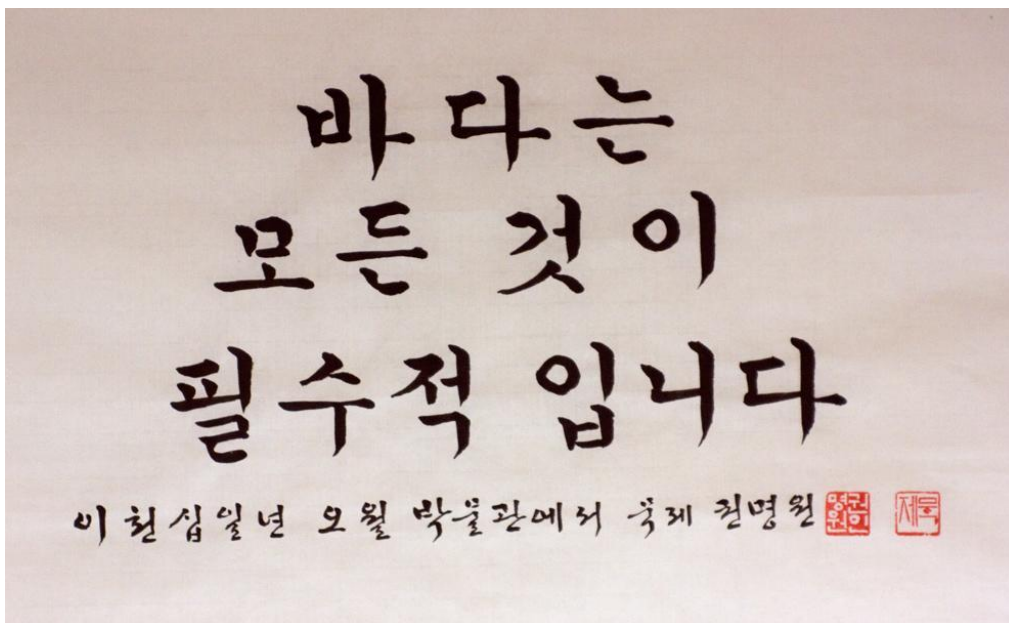 바다는
모든 것이
필수적 입니다
이천십일년 오월 박물관에서 묵제 권명원